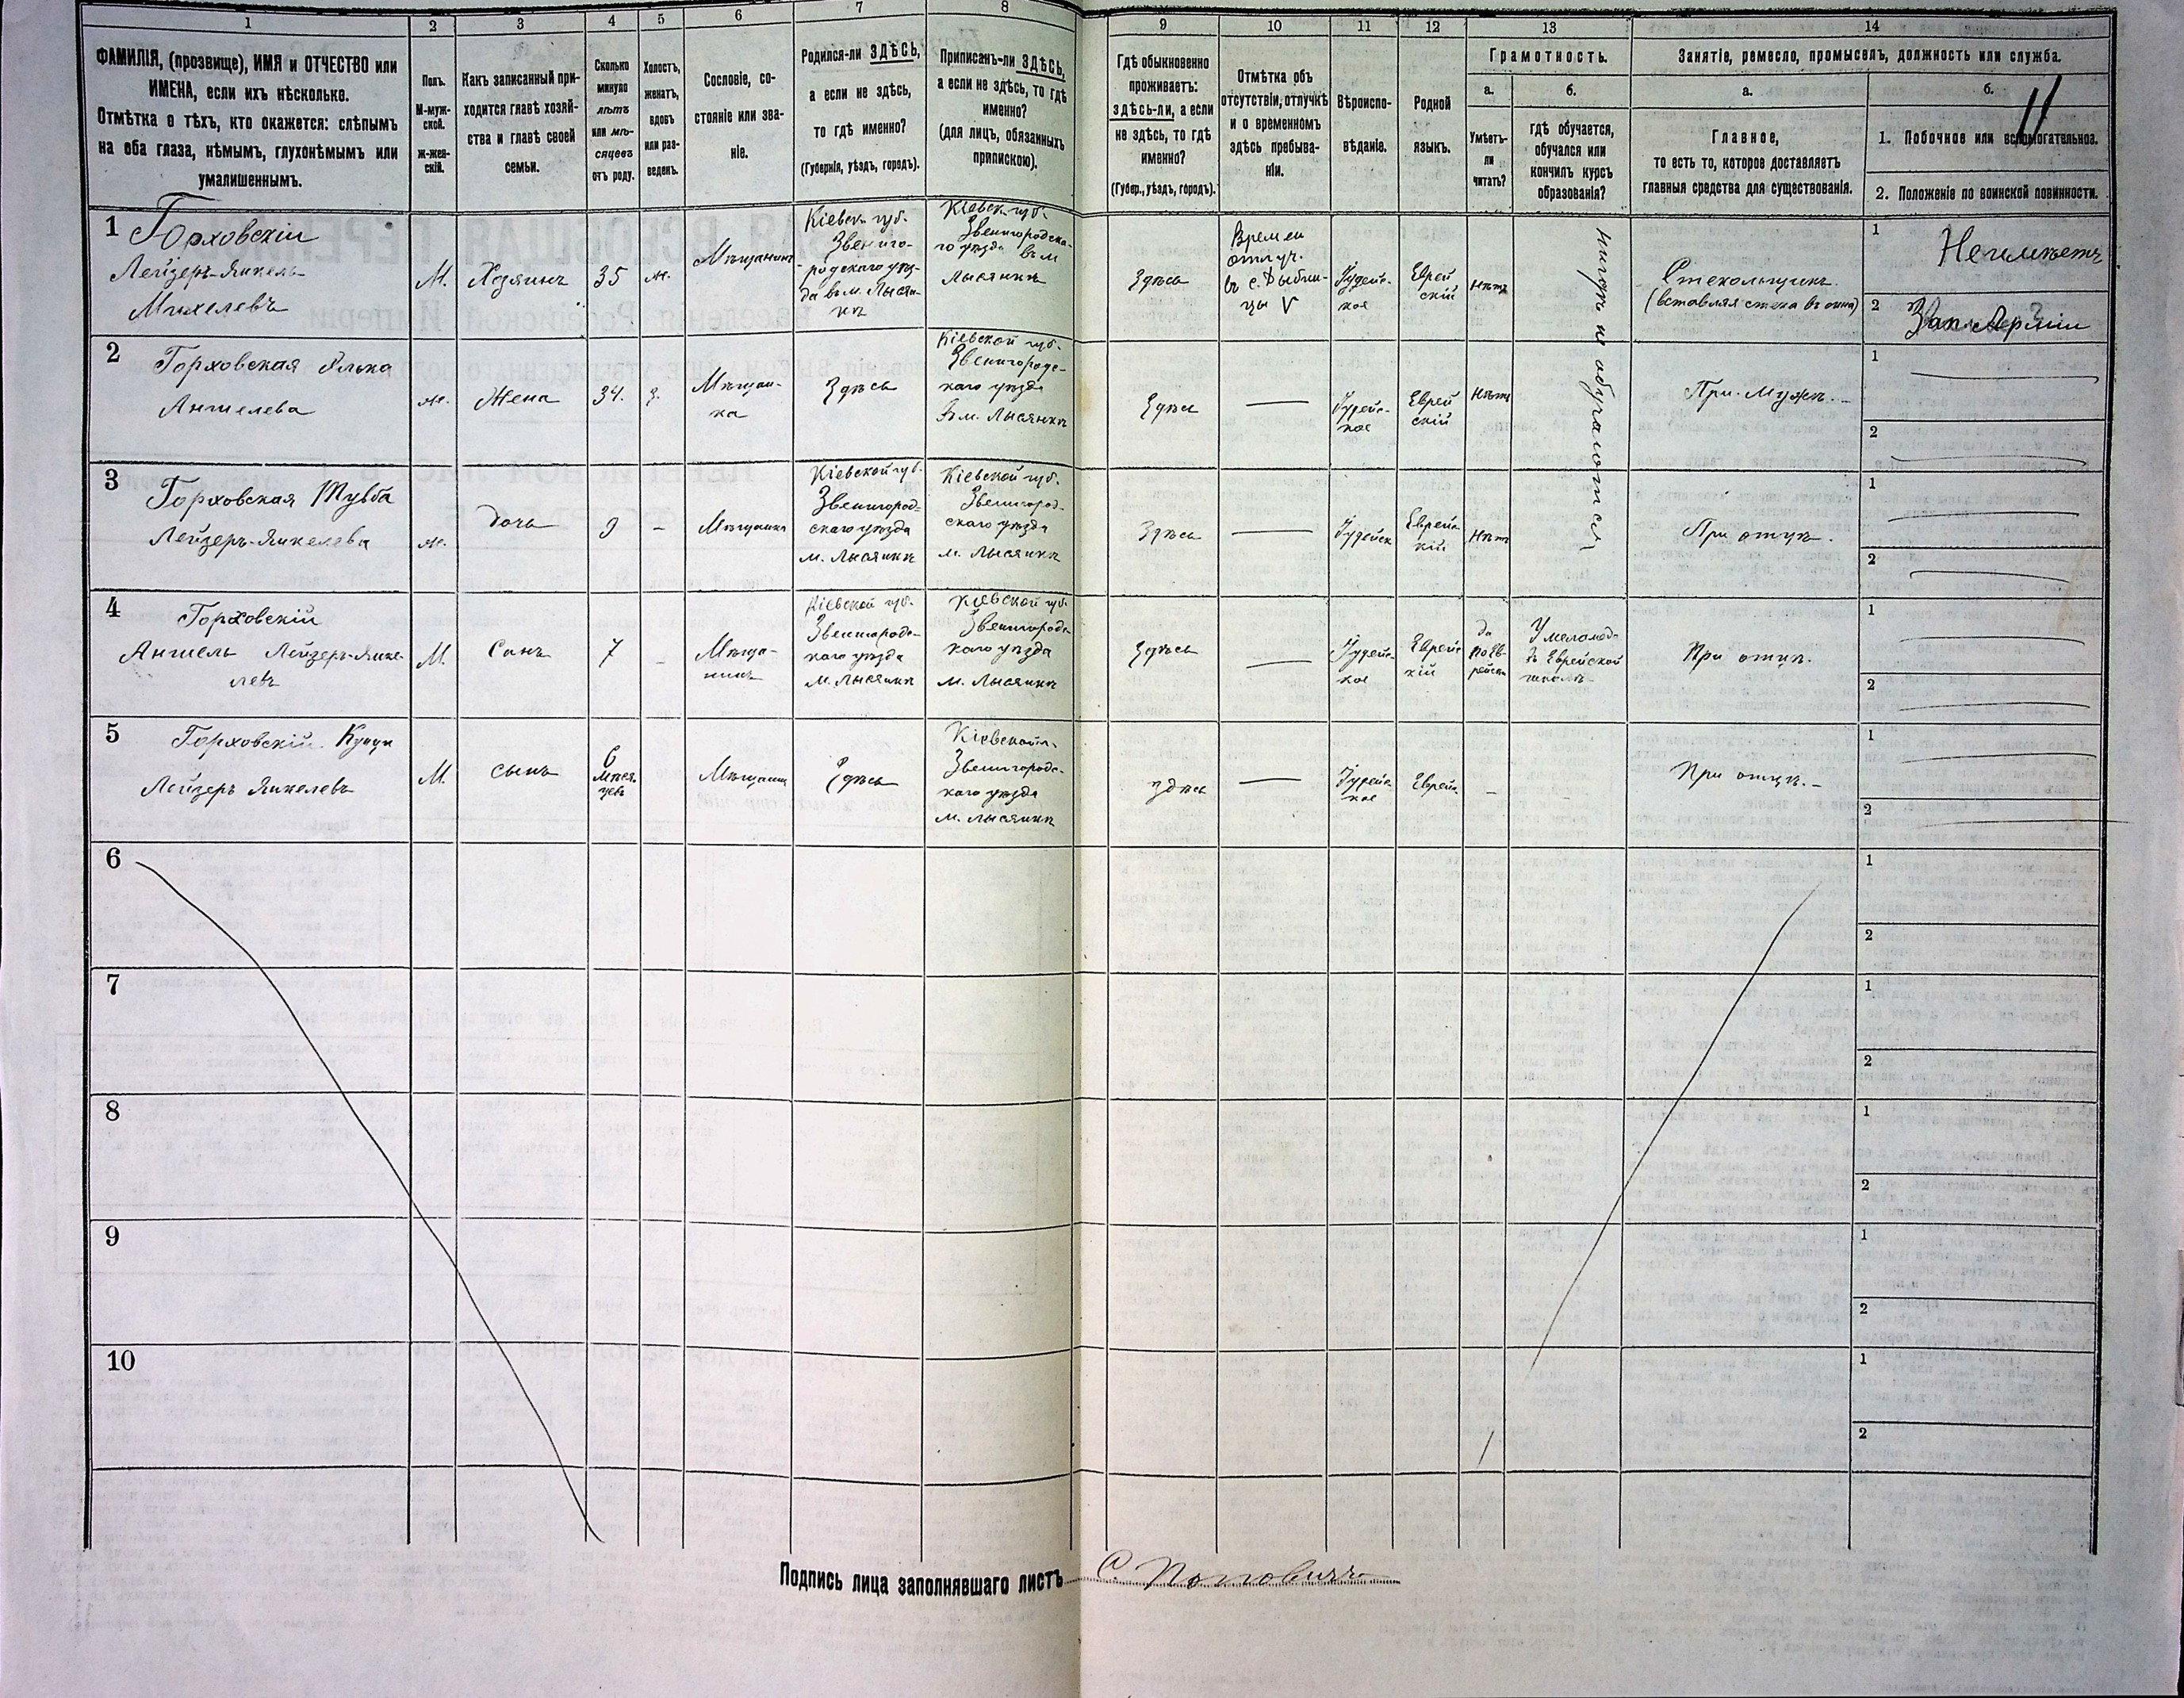 1 2 3 4 5 6 7 8 9 10 11 12 13 14
ФАМИЛІЯ, (прозвище), ИМЯ и ОТЧЕСТВО или
ИМЕНА, если ихъ нѣсколько.
Отмѣтка о тѣхъ, кто окажется: слѣпымъ
на оба глаза, нѣмымъ, глухонѣмымъ или
умалишеннымъ.
Полъ.
М-муж-
ской.
ж-жен-
скій.
Какъ записанный при-
ходится главѣ хозяй-
ства и главѣ своей
семьи.
Сколько
минуло
лѣтъ
или мѣ-
сяцевъ
отъ роду.
Холостъ,
женатъ,
вдовъ
или раз-
веденъ.
Сословіе, со-
стояніе или зва-
ніе.
Родился-ли ЗДѢСЬ,
а если не здѣсь,
то гдѣ именно?
(Губернія, уѣздъ, городъ).
Приписанъ-ли ЗДѢСЬ,
а если не здѣсь, то гдѣ
именно?
(для лицъ, обязанныхъ
припискою).
Гдѣ обыкновенно
проживаетъ:
здѣсь-ли, а если
не здѣсь, то гдѣ
именно?
(Губер., уѣздъ, городъ).
Отмѣтка объ
отсутствіи, отлучкѣ
и о временномъ
здѣсь пребыва-
ніи.
Вѣроиспо-
вѣданіе.
Родной
языкъ.
Грамотность.
а.
Умѣетъ-
ли
читать?
б.
гдѣ обучается,
обучался или
кончилъ курсъ
образованія?
Занятіе, ремесло, промыселъ, должность или служба.
а.
Главное,
то есть то, которое доставляетъ
главныя средства для существованія.
б.
11
1. Побочное или вспомогательное.
2. Положеніе по воинской повинности.
1
Горховскій
Лейзеръ-Янкель
Михелевъ
М.
Хозяинъ
35
ж.
Мѣщанинъ
Кіевск. губ.
Звениго-
родскаго уѣз-
да въ м. Лысян-
кѣ
Кіевск. губ.
Звенигородска-
го уѣзда въ м
Лысянкѣ
Здѣсь
Времен
отлуч.
въ с. Рыбчи-
цы V
Іудейс-
кое
Еврей
скій
Нѣтъ
нигдѣ не обучаются
Стекольщикъ
(вставляя стекла въ окна)
1 Не имѣетъ
2 Зап. Арміи
2
Горховская Элька
Аншелева
ж.
Жена
34.
з.
Мѣщан-
ка
Здѣсь
Кіевской губ.
Звенигородс-
каго уѣзда
въ м. Лысянкѣ
Здѣсь
Іудейс-
кое
Еврей
скій
Нѣтъ
При мужѣ.
1
2
3
Горховская Тувба
Лейзеръ-Янкелева
ж.
дочь
9
-
Мѣщанка
Кіевской губ.
Звенигород-
скаго уѣзда
м. Лысянкѣ
Кіевской губ.
Звенигород-
скаго уѣзда
м. Лысянкѣ
Здѣсь
Іудейск
Еврейс-
кій
Нѣтъ
При отцѣ.
1
2
4
Горховскій
Аншель Лейзеръ-Янке-
левъ
М.
Сынъ
7
-
Мѣща-
нинъ
Кіевской губ.
Звенигородс-
каго уѣзда
м. Лысянкѣ
Кіевской губ.
Звенигородс-
каго уѣзда
м. Лысянкѣ
Здѣсь
Іудейс-
кое
Еврейс
кій
да
по Ев-
рейски
У меламеда
въ Еврейской
школѣ
При отцѣ.
1
2
5
Горховскій
Лейзеръ Янкелевъ
М.
сынъ
6
мѣся-
цевъ
Мѣщанин
Здѣсь
Кіевской г.
Звенигородс-
каго уѣзда
м. Лысянкѣ
здѣсь
Іудейс-
кое
Еврейс
-
При отцѣ.-
1
2
6
1
2
7
1
2
8
1
2
9
1
2
10
1
2
Подпись лица заполнявшаго листъ С. Поповичъ